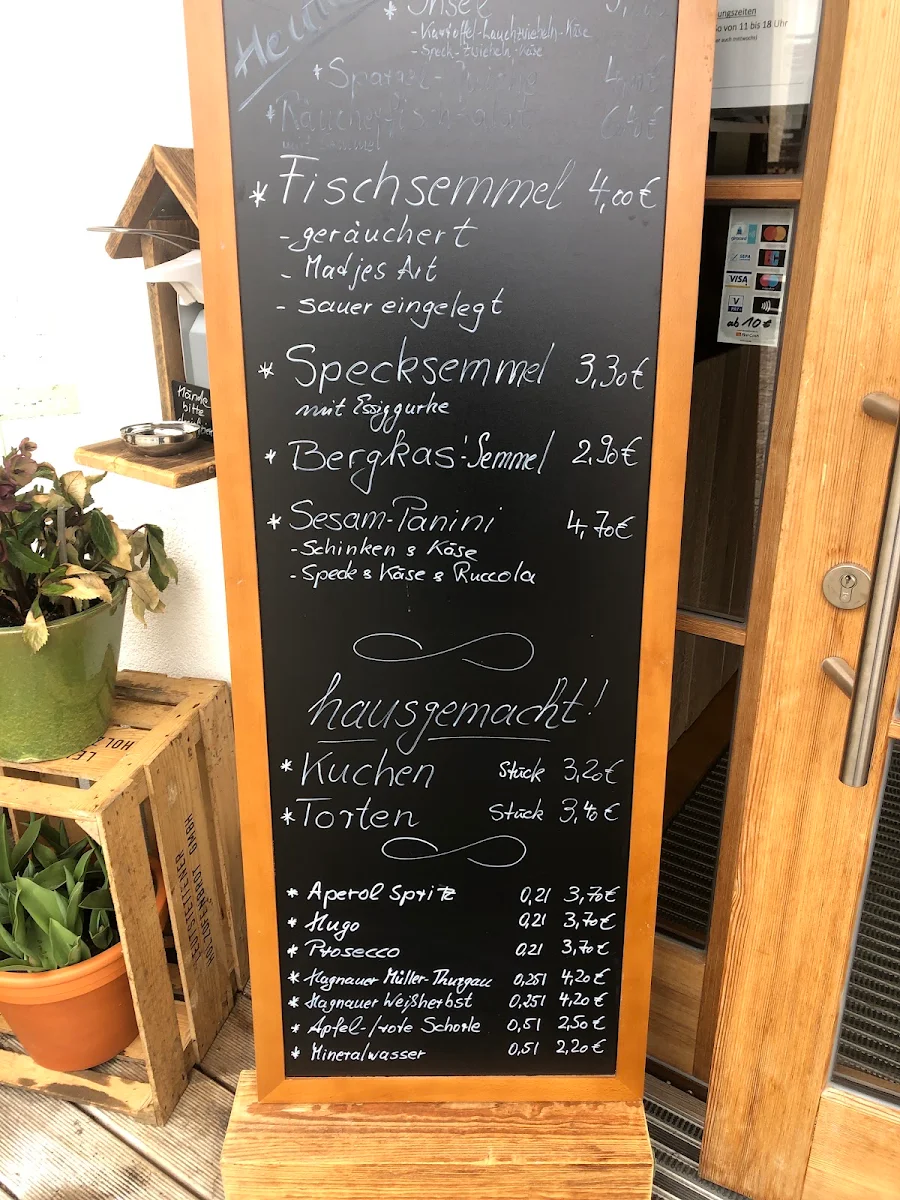 Heute
* Insel
- Kartoffel-Lauchzwiebeln-Käse
- Speck-Zwiebeln-Käse
* Räucherfisch-salat
* Fischsemmel 4,00€
- geräuchert
- Madjes Art
- sauer eingelegt
* Specksemmel 3,30€
mit Essiggurke
* Bergkas'-Semmel 2,90€
* Sesam-Panini 4,70€
- Schinken & Käse
- Speck & Käse & Ruccola
hausgemacht!
* Kuchen Stück 3,20€
* Torten Stück 3,40€
* Aperol Spritz 0,2l 3,70€
* Hugo 0,2l 3,70€
* Prosecco 0,2l 3,70€
* Hagnauer Müller-Thurgau 0,25l 4,20€
* Hagnauer Weißherbst 0,25l 4,20€
* Apfel-/rote Schorle 0,5l 2,50€
* Mineralwasser 0,5l 2,20€
ungszeiten
So von 11 bis 18 Uhr
VISA
ab 10 €
Hände
bitte
HOLZOFENBROT GMBH
LEUTSTETTENER